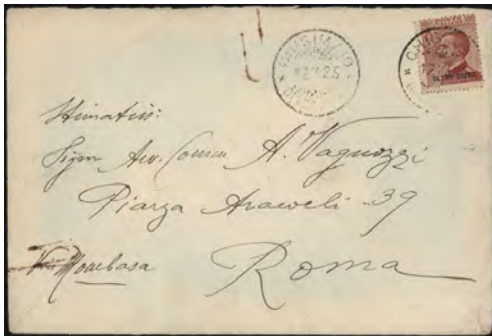 CHISIMAIO
Stimatiss:
Avv. Comm A. Vagnozzi
Piazza Aracoeli 39
Via Mombasa
Roma